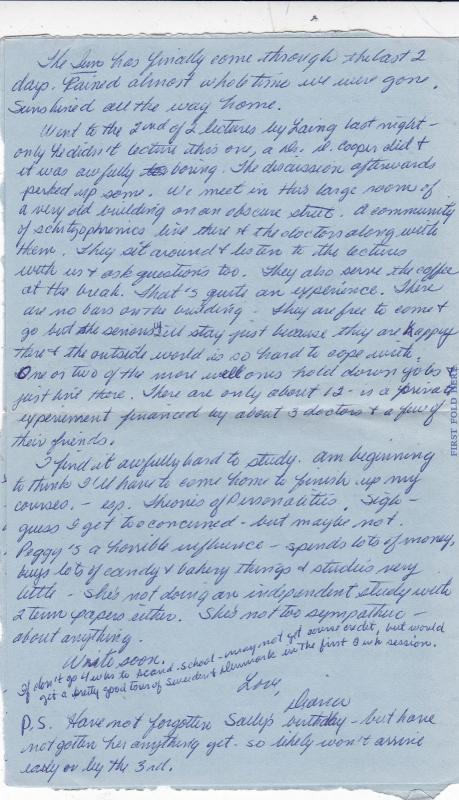 The Sun has finally come through the last 2
days. Rained almost whole time we were gone.
Sunshined all the way home.
Went to the 2nd of 2 lectures by Laing last night -
only he didn't lecture this one, a Dr. D. Cooper did &
it was awfully boring. The discussion afterwards
perked up some. We meet in this large room of
a very old building on an obscure street. A community
of schitzophrenics live there & the doctors along with
them. They sit around & listen to the lectures
with us & ask questions too. They also serve the coffee
at the break. That's quite an experience. There
are no bars on the building. They are free to come &
go but the seriously ill stay just because they are happy
there & the outside world is so hard to cope with.
One or two of the more well ones hold down jobs &
just live there. There are only about 12 - is a private
experiement financed by about 3 doctors & a few of
their friends.
FIRST FOLD HERE
I find it awfully hard to study. Am beginning
to think I'll have to come home to finish up my
courses. - esp. Theories of Personalities. Sigh -
guess I get too concerned - but maybe not.
Peggy's a horrible influence - spends lots of money,
buys lots of candy & bakery things & studies very
little - She's not doing an independent study with
2 term papers either. She's not too sympathetic -
about anything.
Write soon.
If don't go 4 wks to Scand. school - may not get some credit, but would
get a pretty good tour of Sweden & Denmark in the first 3 wk session.
Love,
P.S. Have not forgotten Sally's birthday - but have
not gotten her anything yet - so likely won't arrive
early or by the 3rd.